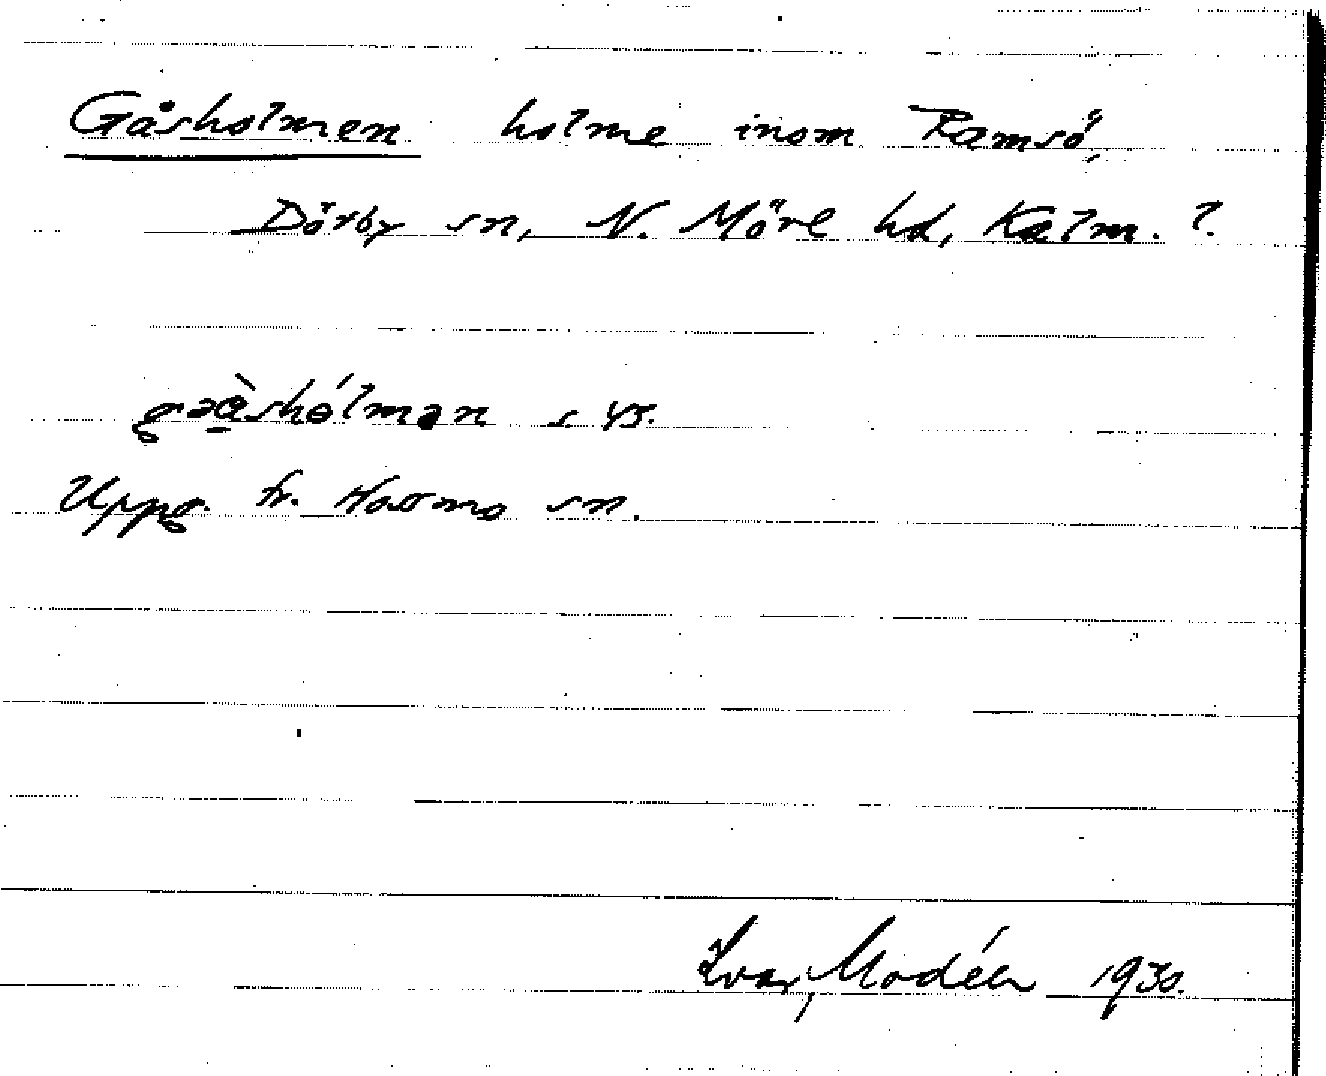 Gåsholmen holme inom Ramsö,
Dörby sn, N. Möre hd, Kalm. l.
s 45.
Uppg. fr. Hossmo sn.
Ivar Modéer 1930.